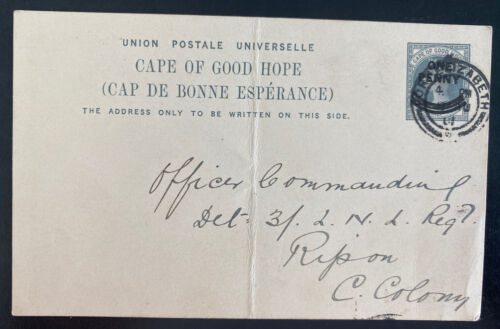 UNION POSTALE UNIVERSELLE
CAPE OF GOOD HOPE
(CAP DE BONNE ESPÉRANCE)
THE ADDRESS ONLY TO BE WRITTEN ON THIS SIDE.
CAPE OF GOOD
ONE
PENNY
IZABETH
Officer Commanding
Det: 3/. L. N. L. Regt.
Ripon
C. Colony